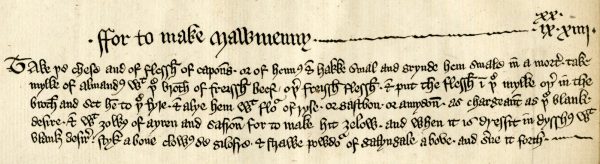 xx
·ffor to make Mawmenny· ix·xiiii·
Take þe chese and of flessh of capons · or of hennes & hakke smal and grynde hem smale in a morter · take
mylke of almandes wt þe broth of freissh beef · oþer freissh flessh · & put the flessh in þe mylke oþer in the
broth and set hem to þe fyre · & alye hem wt flour of ryse · or gastbon · or amydoun · as chargeant as þe blanke
desire · & wt zolkes of ayren and safron for to make hit zelow · and when it is dressit in dysshes wt
blank desire · styk aboue clowes de gilofre · & strawe powdour of galyngale aboue · and serue it forth·